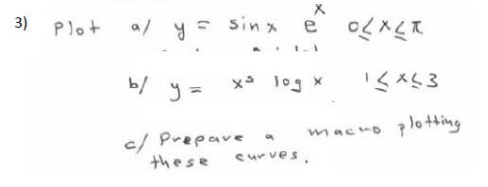 3) Plot a/ y = sin x e^x 0 ≤ x ≤ π
b/ y = x³ log x 1 ≤ x ≤ 3
c/ Prepare a macro plotting
these curves.